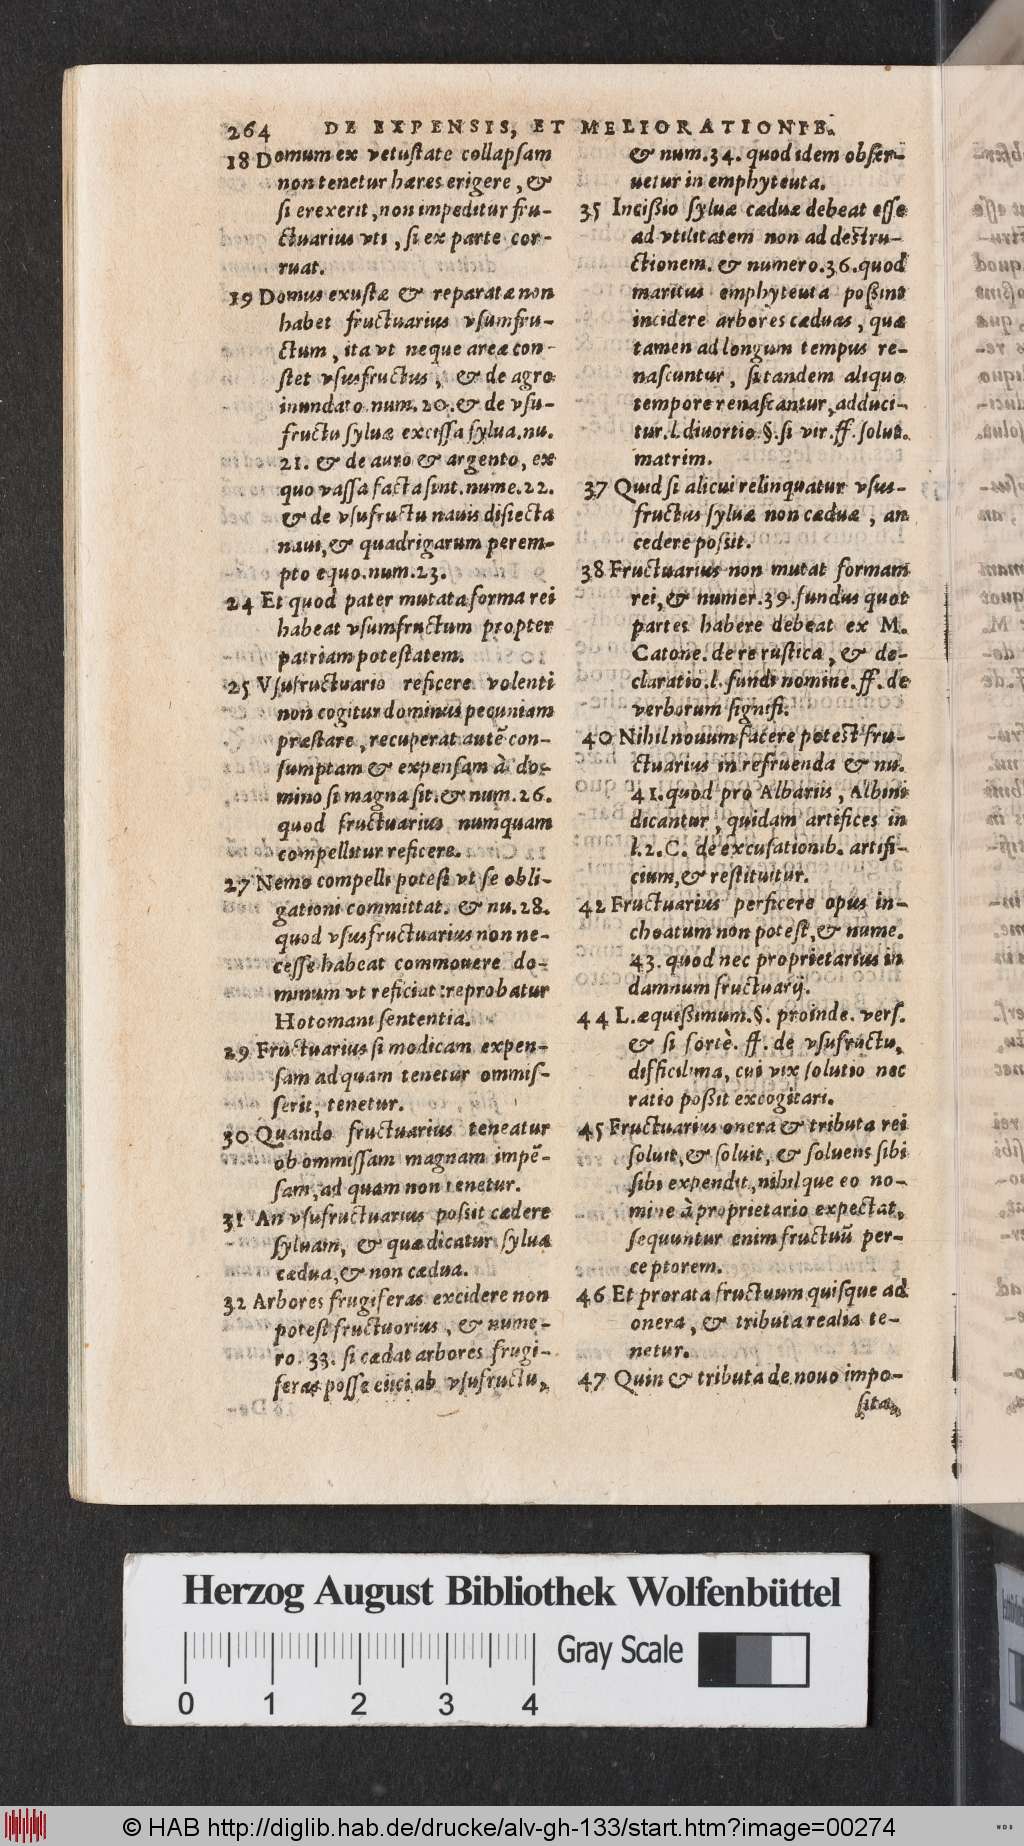 264 DE EXPENSIS, ET MELIORATIONIB.
18 Domum ex vetustate collapsam
non tenetur hæres erigere, &
si erexerit, non impeditur fru-
ctuarius vti, si ex parte cor-
ruat.
19 Domus exustæ & reparatæ non
habet fructuarius vsumfru-
ctum, ita vt neque areæ con-
stet vsusfructus, & de agro
inundato num. 20. & de vsu-
fructu syluæ excissa sylua. nu.
21. & de auro & argento, ex
quo vassa facta sint. nume. 22.
& de vsufructu nauis disiecta
naui, & quadrigarum perem-
pto equo. num. 23.
24 Et quod pater mutata forma rei
habeat vsumfructum propter
patriam potestatem.
25 Vsufructuario reficere volenti
non cogitur dominus pecuniam
præstare, recuperat autē con-
sumptam & expensam à do-
mino si magna sit. & num. 26.
quod fructuarius numquam
compellitur reficere.
27 Nemo compelli potest vt se obli-
gationi committat. & nu. 28.
quod vsusfructuarius non ne-
cesse habeat commouere do-
minum vt reficiat: reprobatur
Hotomani sententia.
29 Fructuarius si modicam expen-
sam ad quam tenetur ommis-
serit, tenetur.
30 Quando fructuarius teneatur
ob ommissam magnam impē-
sam, ad quam non tenetur.
31 An vsufructuarius possit cædere
syluam, & quæ dicatur sylua
cædua, & non cædua.
32 Arbores frugiferas excidere non
potest fructuorius, & nume-
ro. 33. si cædat arbores frugi-
feras posse eiici ab vsufructu,
& num. 34. quod idem obser-
uetur in emphyteuta.
35 Incißio syluæ cæduæ debeat esse
ad vtilitatem non ad destru-
ctionem. & numero. 36. quod
maritus emphyteuta poßint
incidere arbores cæduas, quæ
tamen ad longum tempus re-
nascuntur, si tandem aliquo
tempore renascantur, adduci-
tur. l. diuortio §. si vir. ff. solut.
matrim.
37 Quid si alicui relinquatur vsus-
fructus syluæ non cæduæ, an
cedere poßit.
38 Fructuarius non mutat formam
rei, & numer. 39. fundus quot
partes habere debeat ex M.
Catone. de re rustica, & de-
claratio. l. fundi nomine. ff. de
verborum signifi.
40 Nihil nouum facere potest fru-
ctuarius in refruenda & nu.
41. quod pro Albariis, Albini
dicantur, quidam artifices in
l. 2. C. de excusationib. artifi-
cium, & restituitur.
42 Fructuarius perficere opus in-
choatum non potest, & nume.
43. quod nec proprietarius in
damnum fructuarij.
44 L. æquißimum. §. proinde. vers.
& si fortè. ff. de vsufructu,
difficilima, cui vix solutio nec
ratio poßit excogitari.
45 Fructuarius onera & tributa rei
soluit, & soluit, & soluens sibi
sibi expendit, nihilque eo no-
mine à proprietario expectat,
sequuntur enim fructuū per-
ceptorem.
46 Et pro rata fructuum quisque ad
onera, & tributa realia te-
netur.
47 Quin & tributa de nouo impo-
sita,
Herzog August Bibliothek Wolfenbüttel
Gray Scale
0 1 2 3 4
© HAB http://diglib.hab.de/drucke/alv-gh-133/start.htm?image=00274